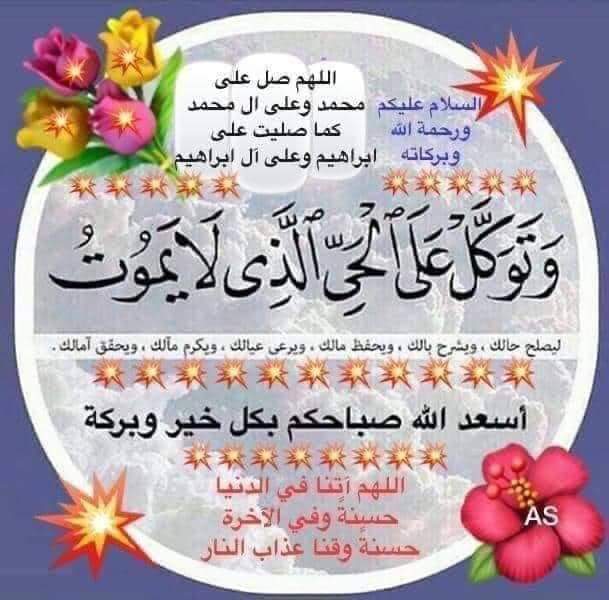 السلام عليكم
ورحمة الله
وبركاته
اللهم صل على
محمد وعلى ال محمد
كما صليت على
ابراهيم وعلى آل ابراهيم
وَتَوَكَّلْ عَلَى ٱلْحَىِّ ٱلَّذِى لَا يَمُوتُ
ليصلح حالك ، ويشرح بالك ، ويحفظ مالك ، ويرعى عيالك ، ويكرم مآلك ، ويحقق آمالك .
أسعد الله صباحكم بكل خير وبركة
اللهم آتنا في الدنيا
حسنةً وفي الآخرة
حسنةً وقنا عذاب النار
AS